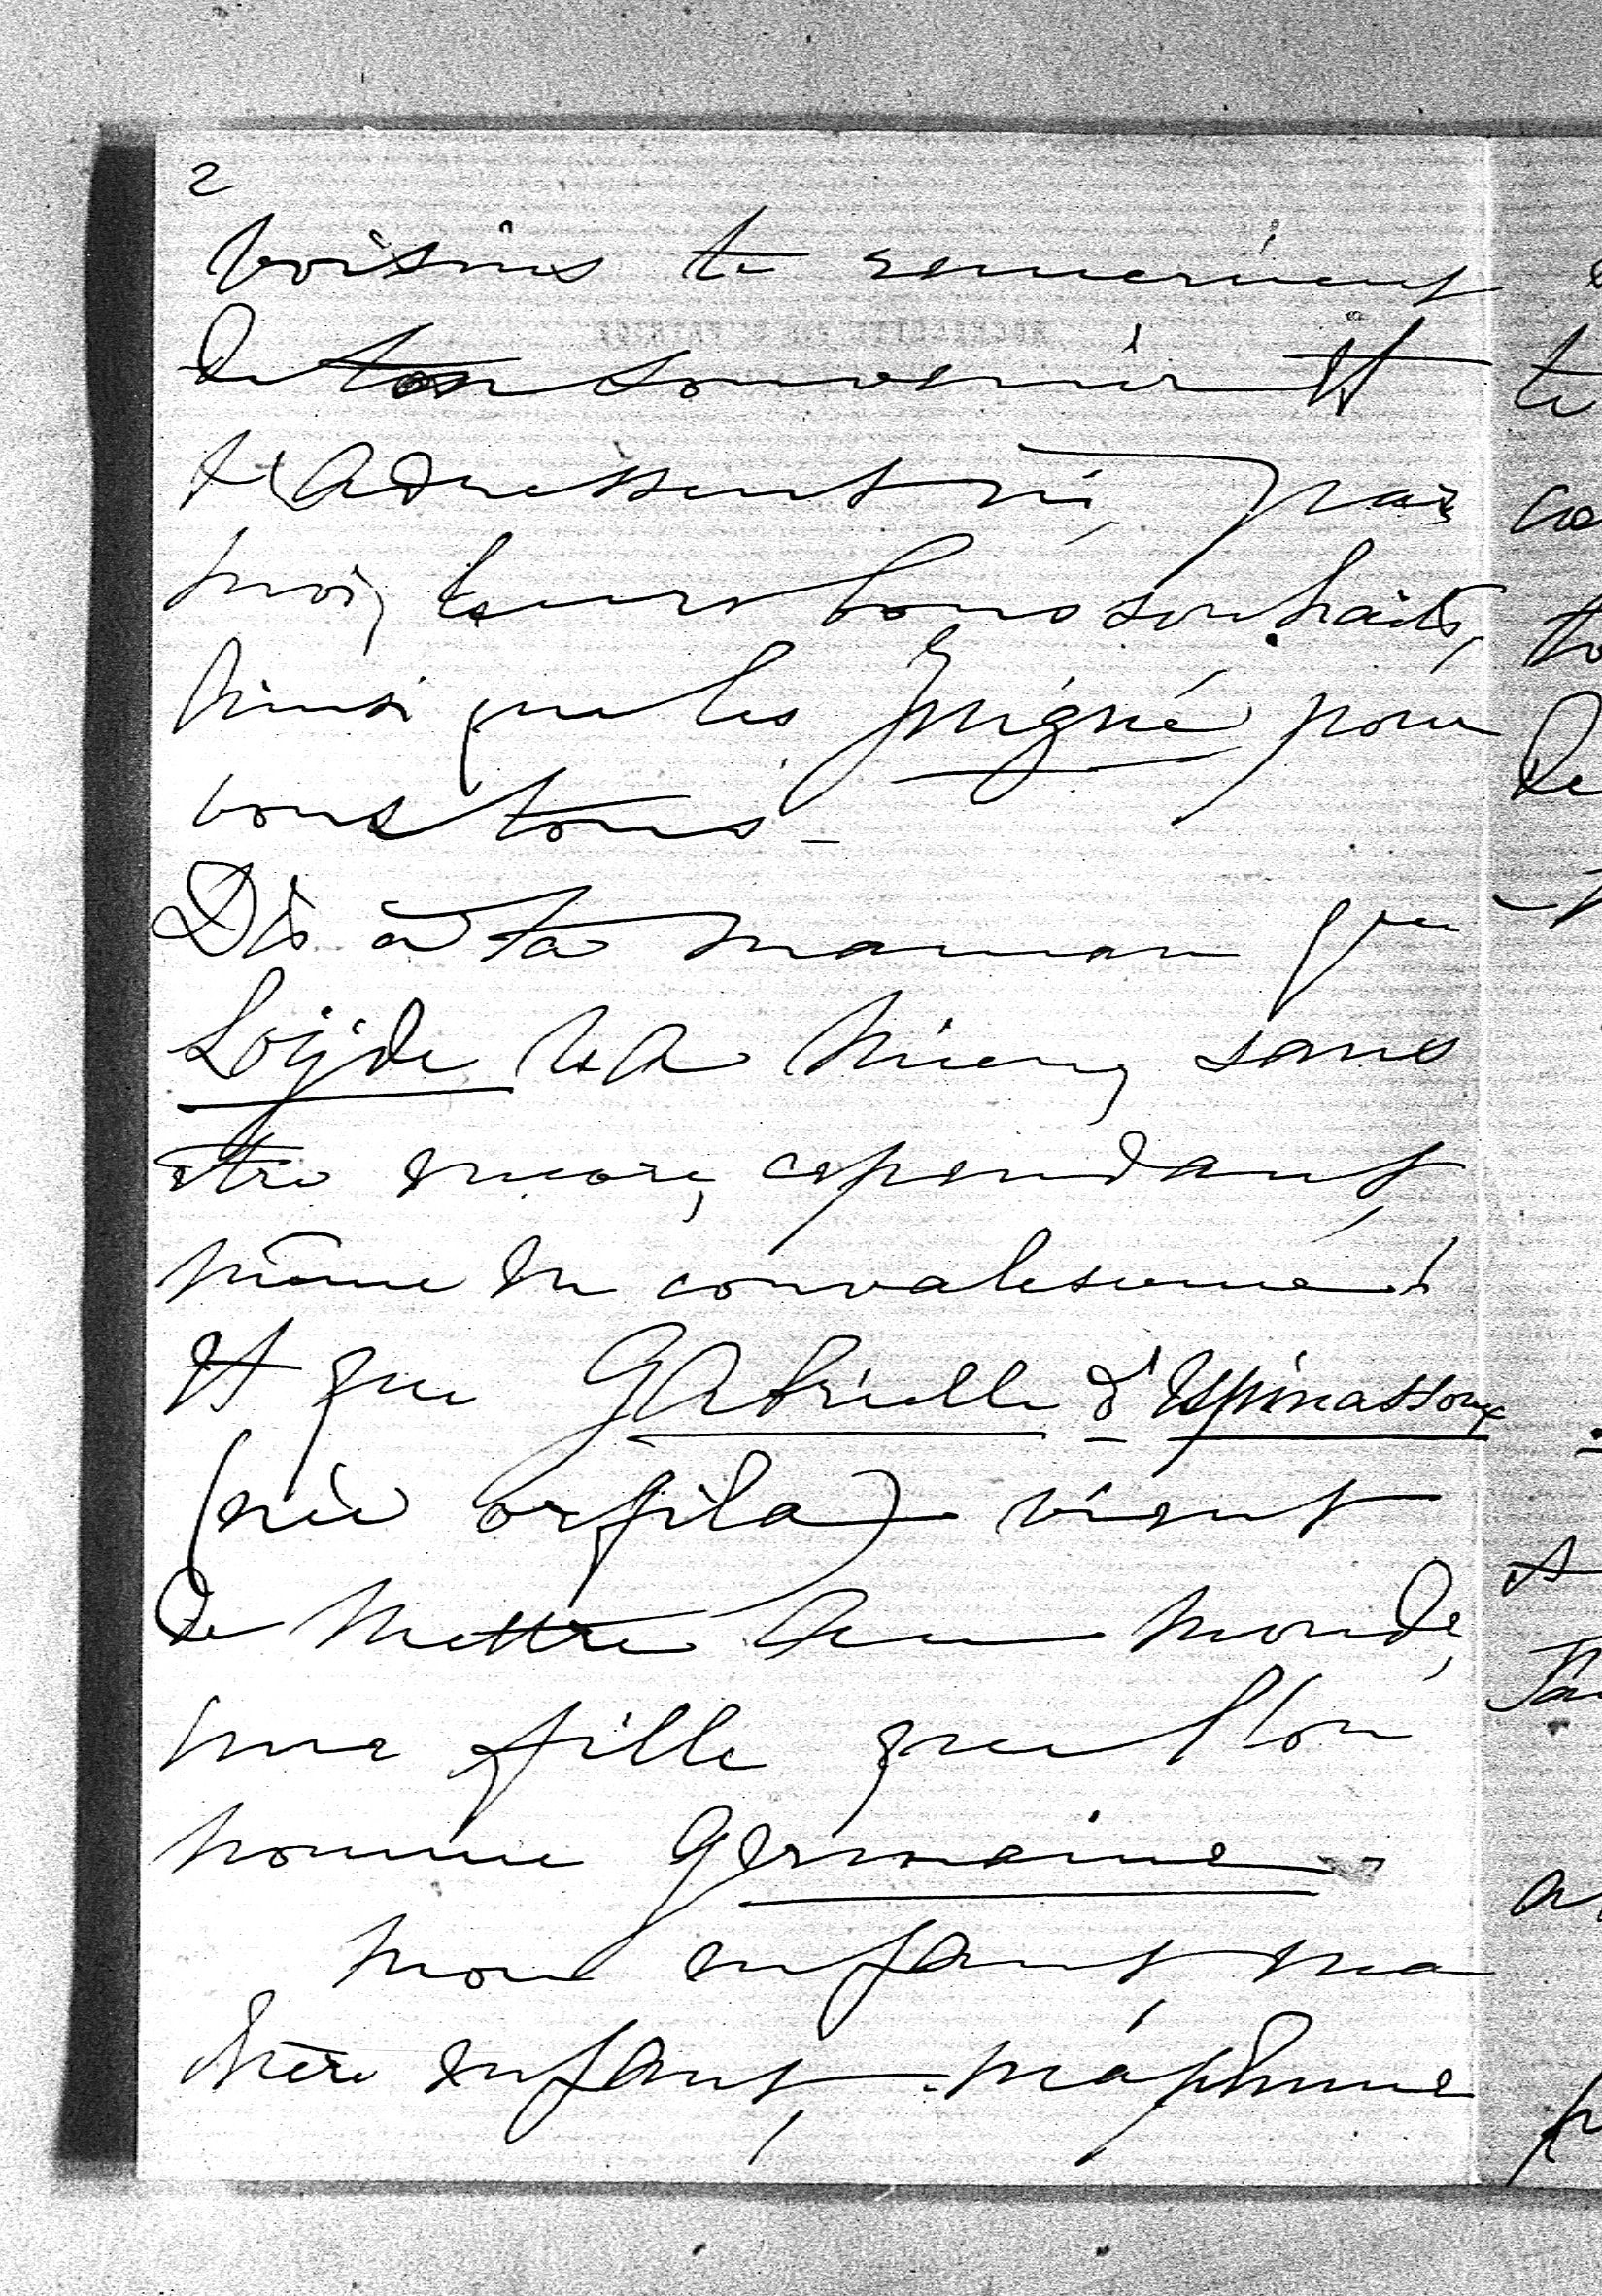 2
voisins te remercient
de ton souvenir et
t'adressent ici, par
moi, leurs bons souhaits,
Ainsi que les Juigné pour
vous tous –
Dis à ta maman que
va mieux, sans
être encore, cependant,
même en convalescence !
Et que Gabrielle d'Espinassoux
(née orfila) vient
de mettre Au monde,
une fille que l'on
nomme Germaine.
Mon enfant, ma
chère enfant,